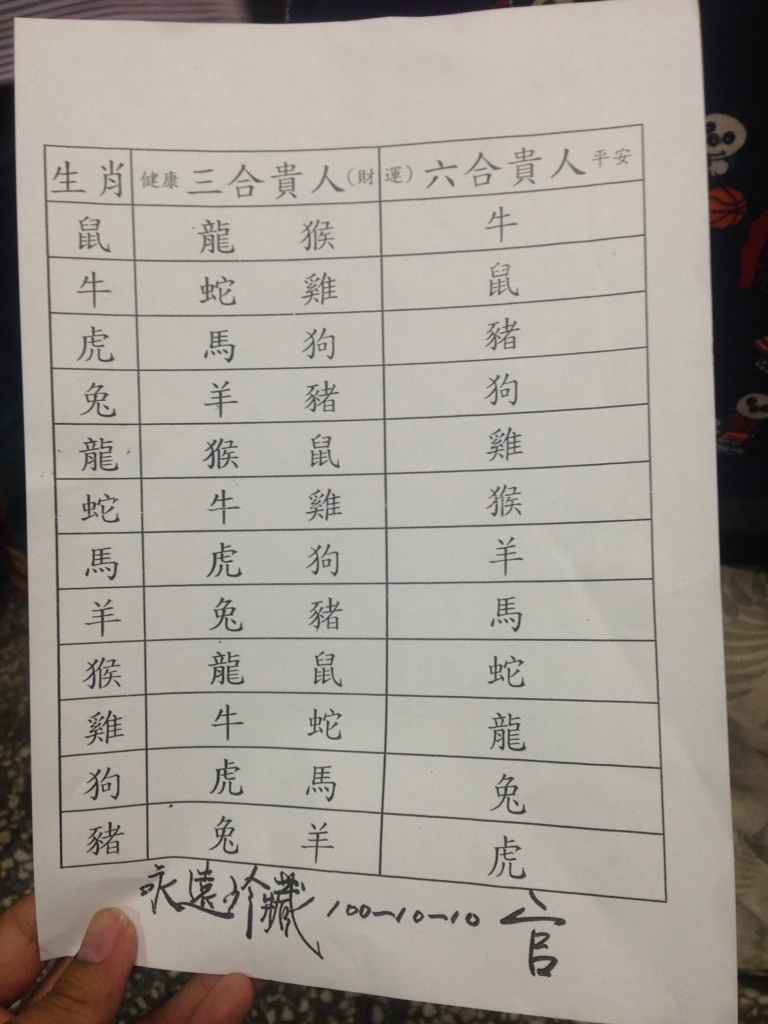 生肖 健康 三合貴人(財運) 六合貴人 平安
鼠 龍 猴 牛
牛 蛇 雞 鼠
虎 馬 狗 豬
兔 羊 豬 狗
龍 猴 鼠 雞
蛇 牛 雞 猴
馬 虎 狗 羊
羊 兔 豬 馬
猴 龍 鼠 蛇
雞 牛 蛇 龍
狗 虎 馬 兔
豬 兔 羊 虎
永遠珍藏 100-10-10